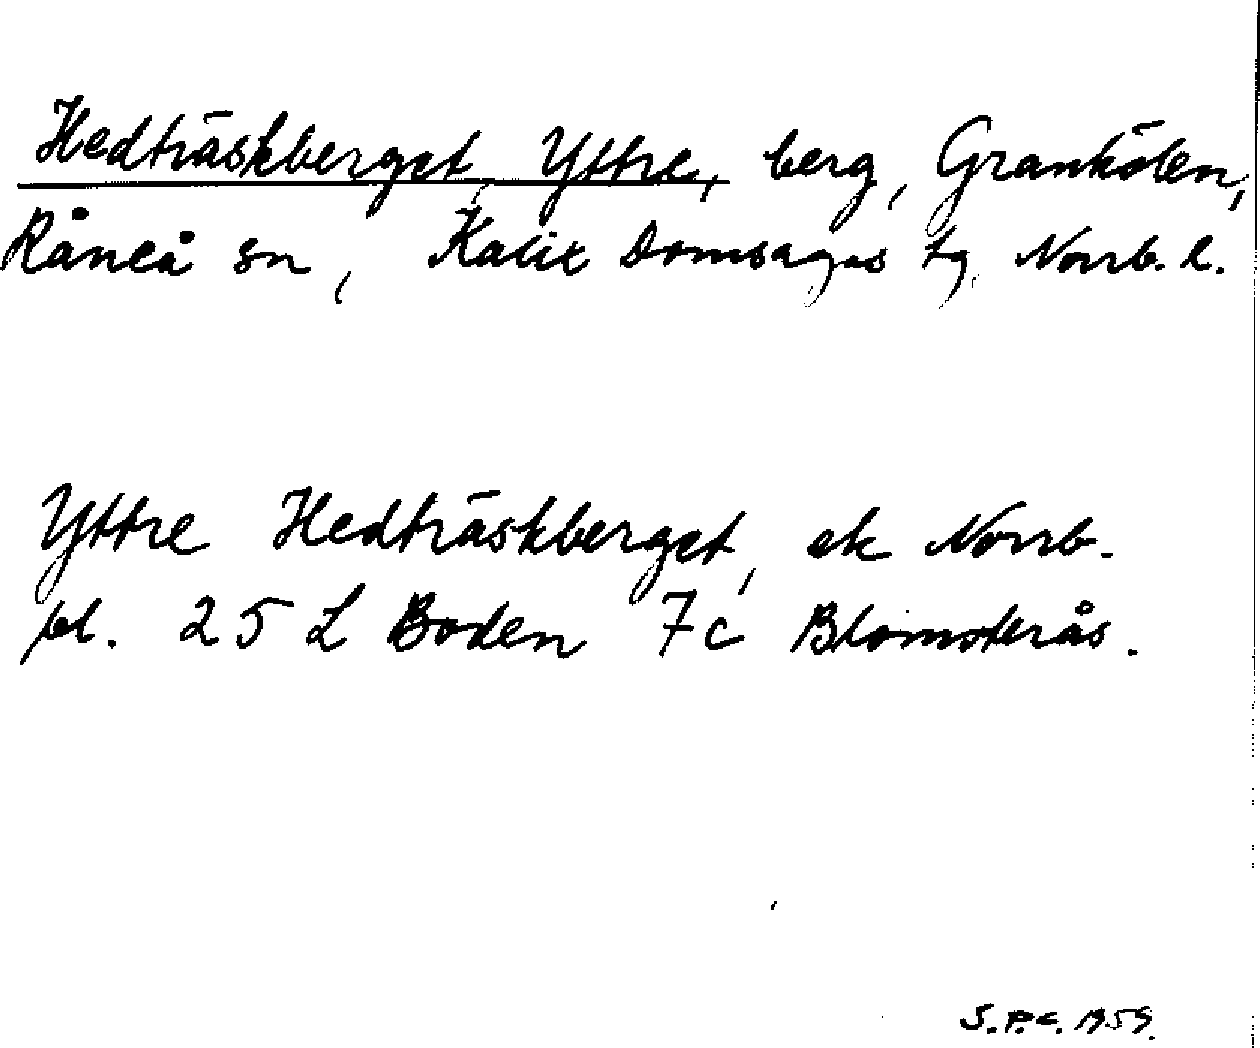 Hedträskberget, Yttre, berg, Grankölen,
Råneå sn, Kalix Domsagas tg, Norrb. l.
Yttre Hedträskberget, ek Norrb.
bl. 25 L Boden 7c Blomokrås.
S.P.C. 1959.